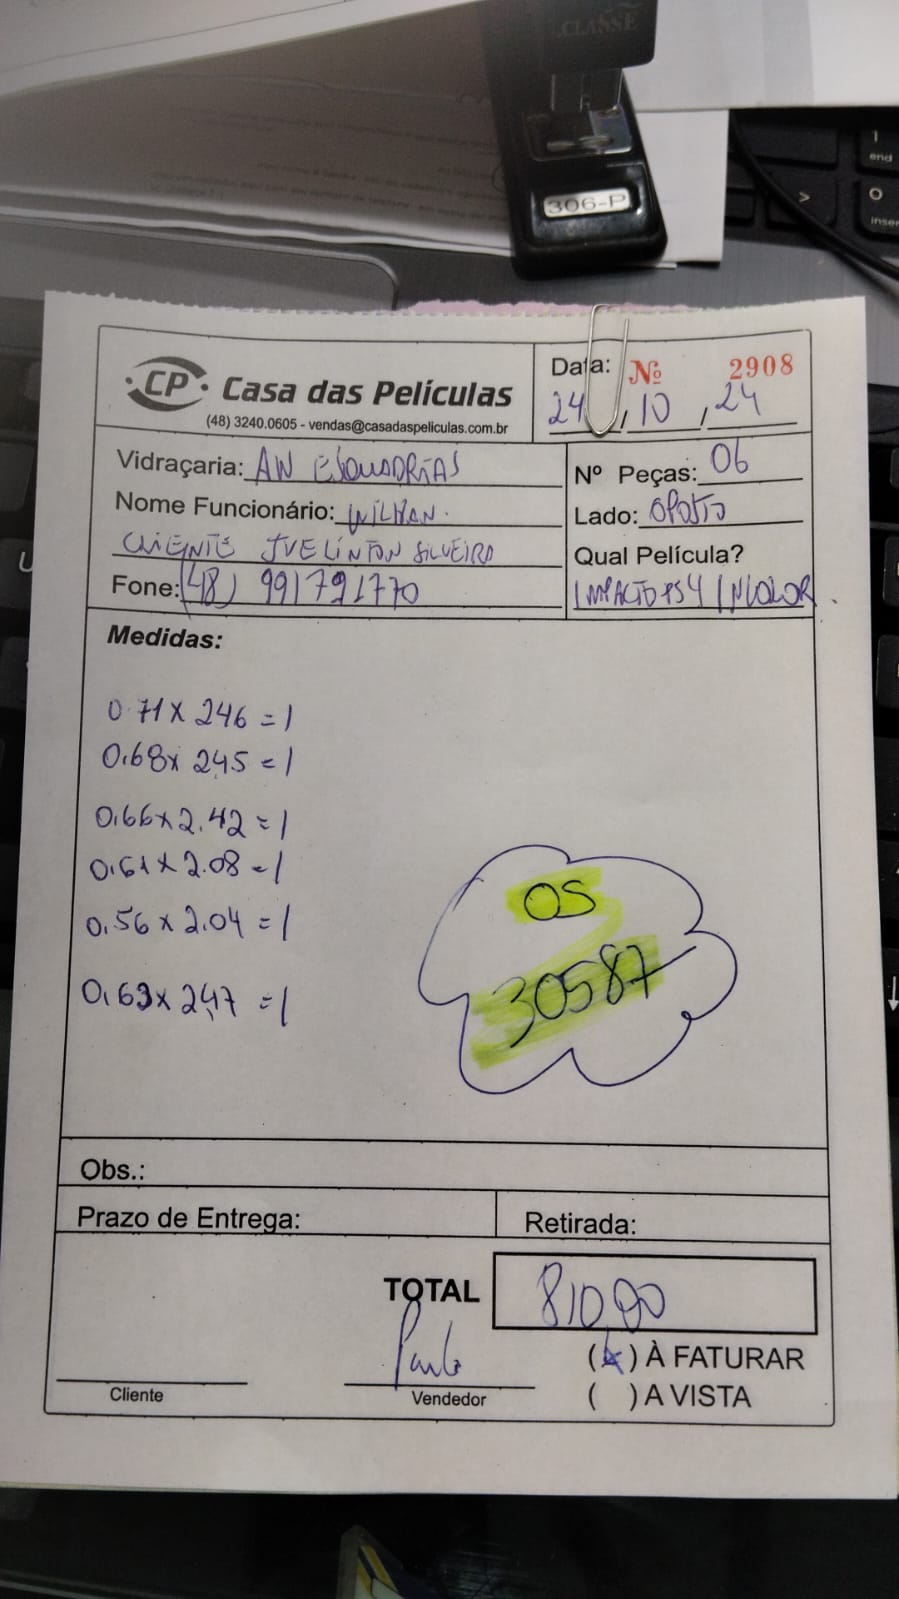 CLASSE
306-P
end
insert
CP Casa das Películas
(48) 3240.0605 - vendas@casadaspeliculas.com.br
Data: Nº 2908
24, 10, 24
Vidraçaria: AW ESQUADRIAS
Nº Peças: 06
Nome Funcionário: WILLIAN.
Lado: OPOSTO
CLIENTE JUELINTON SILVEIRO
Qual Película?
Fone: (48) 991791770
IMPACTO PS4 INCOLOR.
Medidas:
0.71 x 246 = 1
0,68 x 2,45 = 1
0,66 x 2.42 = 1
0,61 x 2.08 = 1
0,56 x 2.04 = 1
0,63 x 2,47 = 1
OS
30587
Obs.:
Prazo de Entrega:
Retirada:
TOTAL 810,00
Paulo
(x) À FATURAR
Cliente
Vendedor
( ) A VISTA